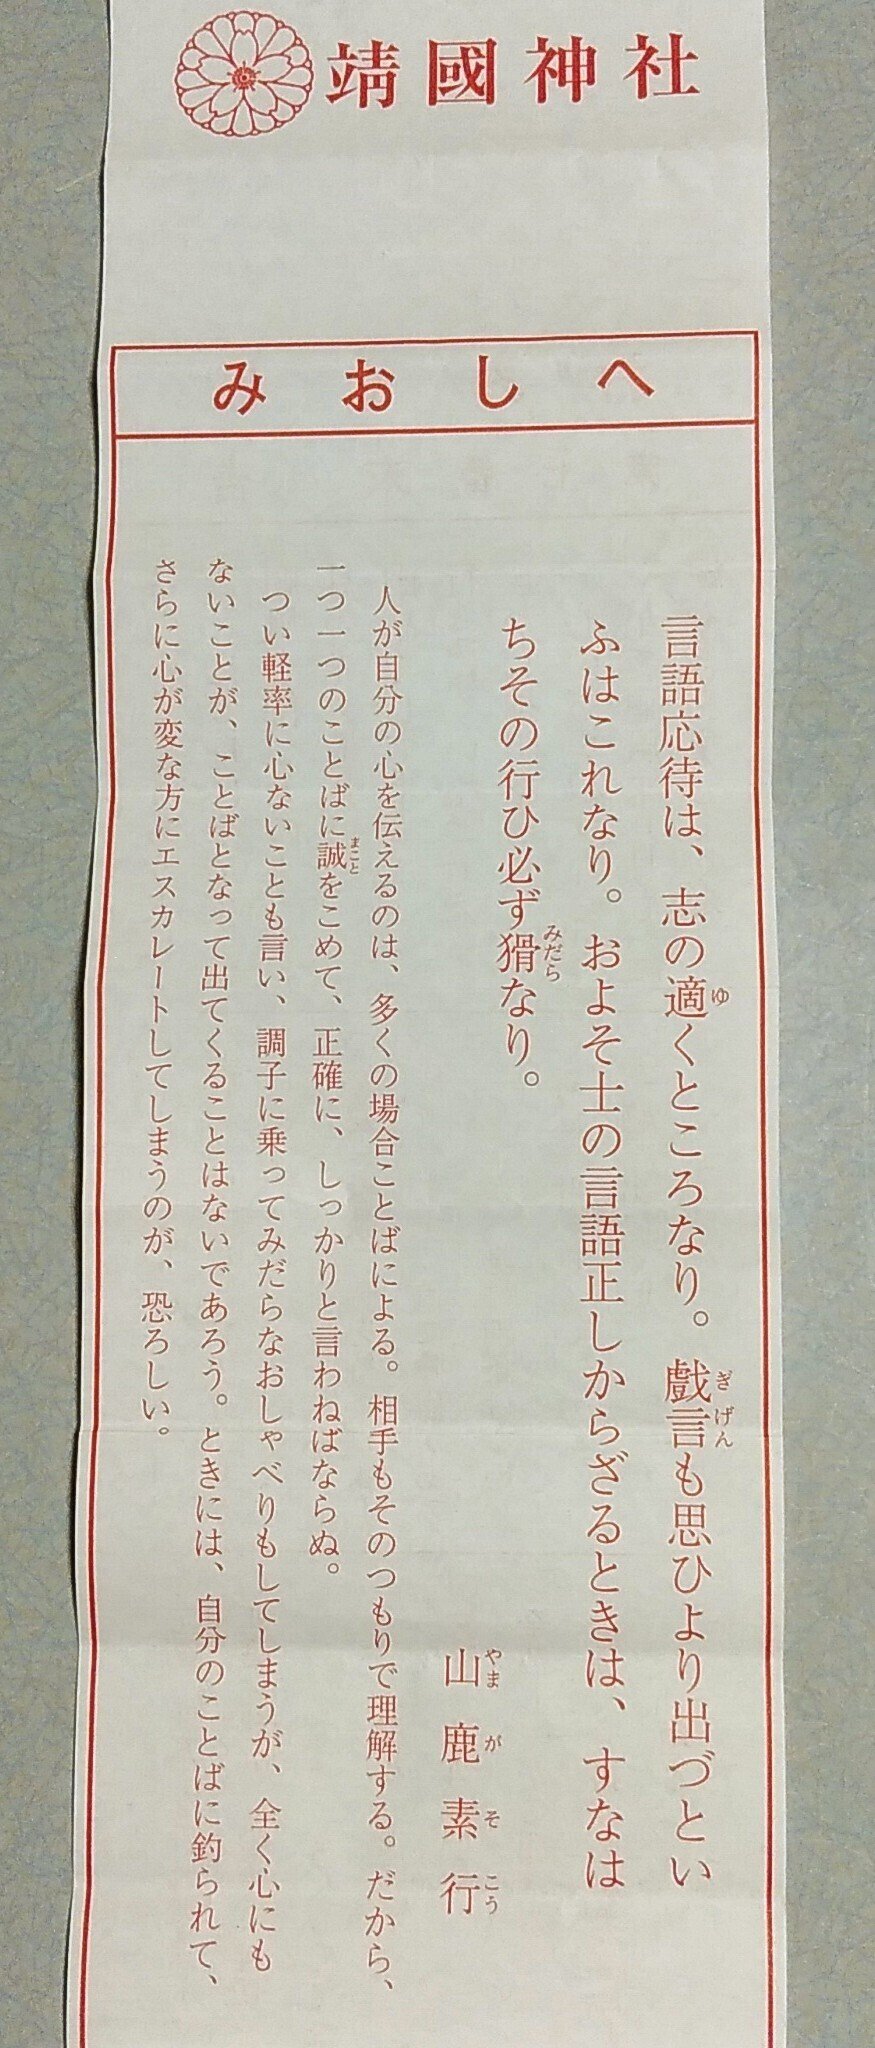 靖國神社
みおしへ
言語応待は、志の適くところなり。戲言も思ひより出づとい
ゆ
ぎげん
ふはこれなり。およそ士の言語正しからざるときは、すなは
ちその行ひ必ず猾なり。
みだら
山鹿素行
やまがそこう
人が自分の心を伝えるのは、多くの場合ことばによる。相手もそのつもりで理解する。だから、
一つ一つのことばに誠をこめて、正確に、しっかりと言わねばならぬ。
まこと
つい軽率に心ないことも言い、調子に乗ってみだらなおしゃべりもしてしまうが、全く心にも
ないことが、ことばとなって出てくることはないであろう。ときには、自分のことばに釣られて、
さらに心が変な方にエスカレートしてしまうのが、恐ろしい。